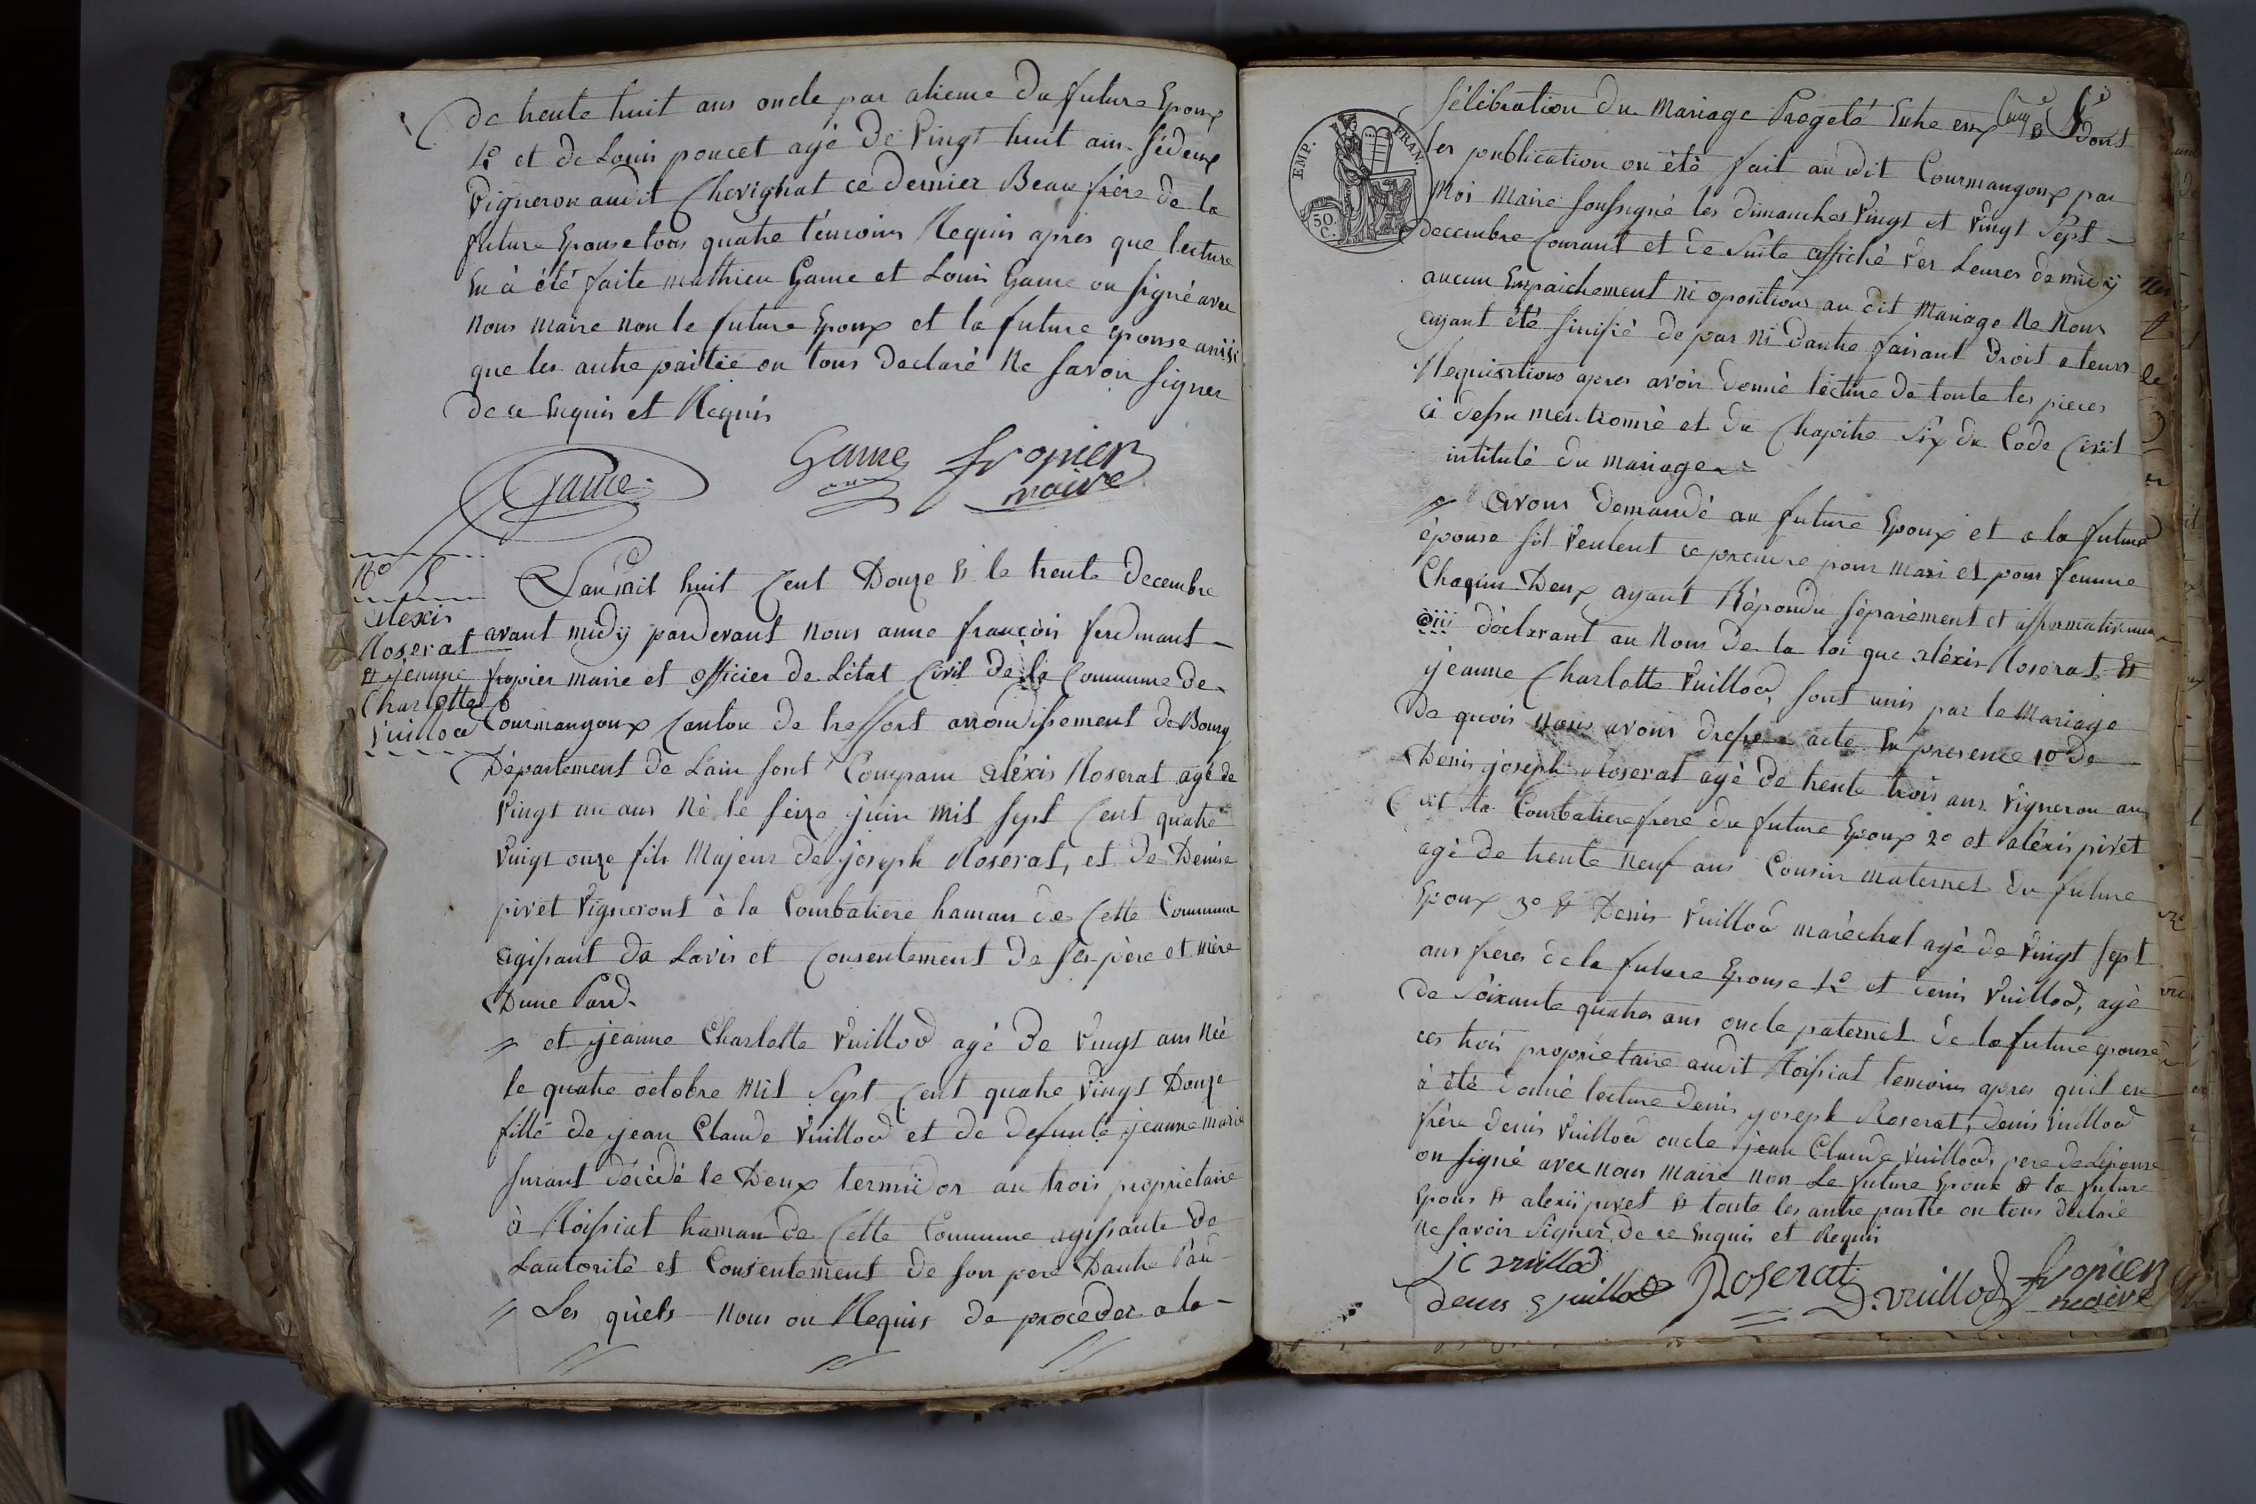 de trente huit ans oncle par alience du future Epoux
4e et de Louis poncet agé de Vingt huit ans sédeux
Vigneron audit Chevignat ce dernier Beau frère de la
future Epouse tous quatre témoins Requis apres que lecture
En à été faite mathieu Game et Louis Game on signé avec
Nous maire non le future Epoux et la future epouse ainsi
que les autre partie on tous déclaré Ne savoir signer
de ce Enquis et Requis
Game Game fropier
maire
No 5
alexis
Roserat
et jeanne
Charlotte
Vuillod
Lan mil huit Cent Douze Et le trente Decembre
avant midÿ pardevant Nous anne françois ferdinant
fropier maire et officier de Létat Civil de la Commune de
Courmangoux Canton de treffort arrondissement de Bourg
Département de Lain sont Comparu aléxis Roserat agé de
Vingt un ans Né le seize juin mil sept Cent quatre
Vingt onze fils Majeur de joseph Roserat, et de Denise
pivet Vigneront à la Courbatiere haman de Cette Commune
agissant de Lavis et Consentement de ses père et mère
Dune Pard
et jeanne Charlotte Vuillod agé de Vingt ans Née
le quatre octobre mil Sept Cent quatre Vingt Douze
fille de jean Claude Vuillod et de defunte jeanne marie
surant décédé le Deux termidor an trois propriétaire
à Roissiat haman de Cette Commune agissante de
Lautorité et Consentement de son pere Dautre Pard
Les quels Nous on Requis de proceder a la
Célébration du Mariage Progeté Entre eux dont
les publication on été fait audit Courmangoux par
Moi Maire soussigné les dimanches Vingt et Vingt Sept
decembre Courant et de Suite affiché Ver Leures de midÿ
aucun Empaichement ni opositions au dit Mariage Ne Nous
ayant été sinifié de par Ni Dautre faisant Droit a leurs
Requisitions apres avoir donné lécture de toute les pieces
ci dessu mentionné et du Chapitre Six du Code Civil
intitulé du mariage
EMP. FRAN.
50
C.
avons demandé au future Epoux et a la future
épouse sil Veulent ce prendre pour mari et pour femme
Chaquns Deux ayant Répondu séparément et affirmativement
déclarant au Nom de la loi que aléxis Roserat Et
jeanne Charlotte Vuillod, sont unis par le Mariage
De quois nous avons dressé acte En presence 1o De
Denis joseph Roserat agé de trente trois ans Vigneron au
dit la Courbatiere frere du future Epoux 2e et aléxis pivet
agé de trente Neuf ans Cousin maternel du future
Epoux 3e Et Denis Vuillod maréchal agé de Vingt sept
ans freres de la future Epouse 4e et denis Vuillod, agé
de Soixante quatre ans oncle paternel de la future epouse
ces trois proprietaire audit Roissiat temoins apres quil en
à été donné lecture denis joseph Roserat, Denis Vuillod
frère denis Vuillod oncle jean Claude Vuillod, pere de Lépouse
on signé avec nous maire non Le future Epoux et la future
Epous et alexis pivet et toute les autre partie on tous déclaré
Ne savoir Signer de ce Enquis et Requis
jc vuillod
denis vuillod Roserat D. vuillod fropier
maire